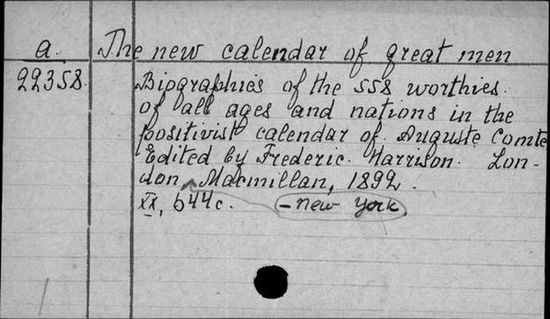 a. The new calendar of great men
22358. Biographies of the 558 worthies
of all ages and nations in the
positivist calendar of Auguste Comte
Edited by Frederic Harrison. Lon-
don, Macmillan, 1892.
XX, 644c. - new york